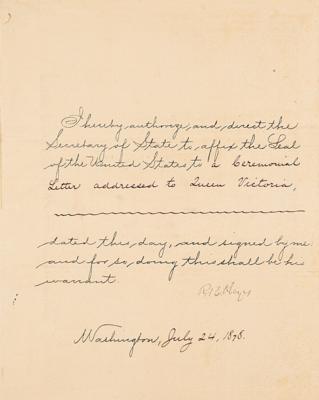 I hereby authorize and direct the
Secretary of State to affix the Seal
of the United States to a Ceremonial
Letter addressed to Queen Victoria,
dated this day, and signed by me:
and for so doing this shall be his
warrant.
R.B.Hayes
Washington, July 24, 1878.